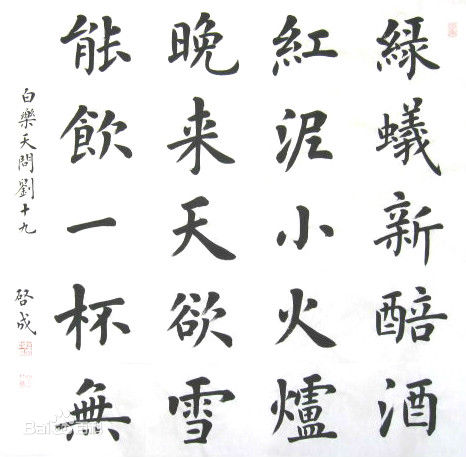 綠蟻新醅酒
紅泥小火爐
晚来天欲雪
能飲一杯無
白樂天問劉十九
啓成
Bai百科